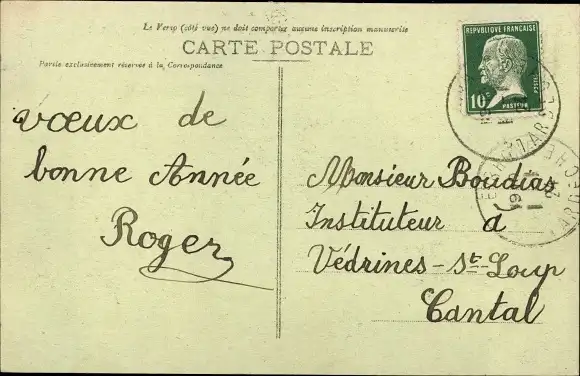 Le Verso (côté vue) ne doit comporter aucune inscription manuscrite
CARTE POSTALE
Partie exclusivement réservée à la Correspondance
RÉPUBLIQUE FRANÇAISE
10c
POSTES
PASTEUR
vœux de
bonne Année
Roger
Monsieur Boudias
Instituteur a
Védrines-St-Loup
Cantal